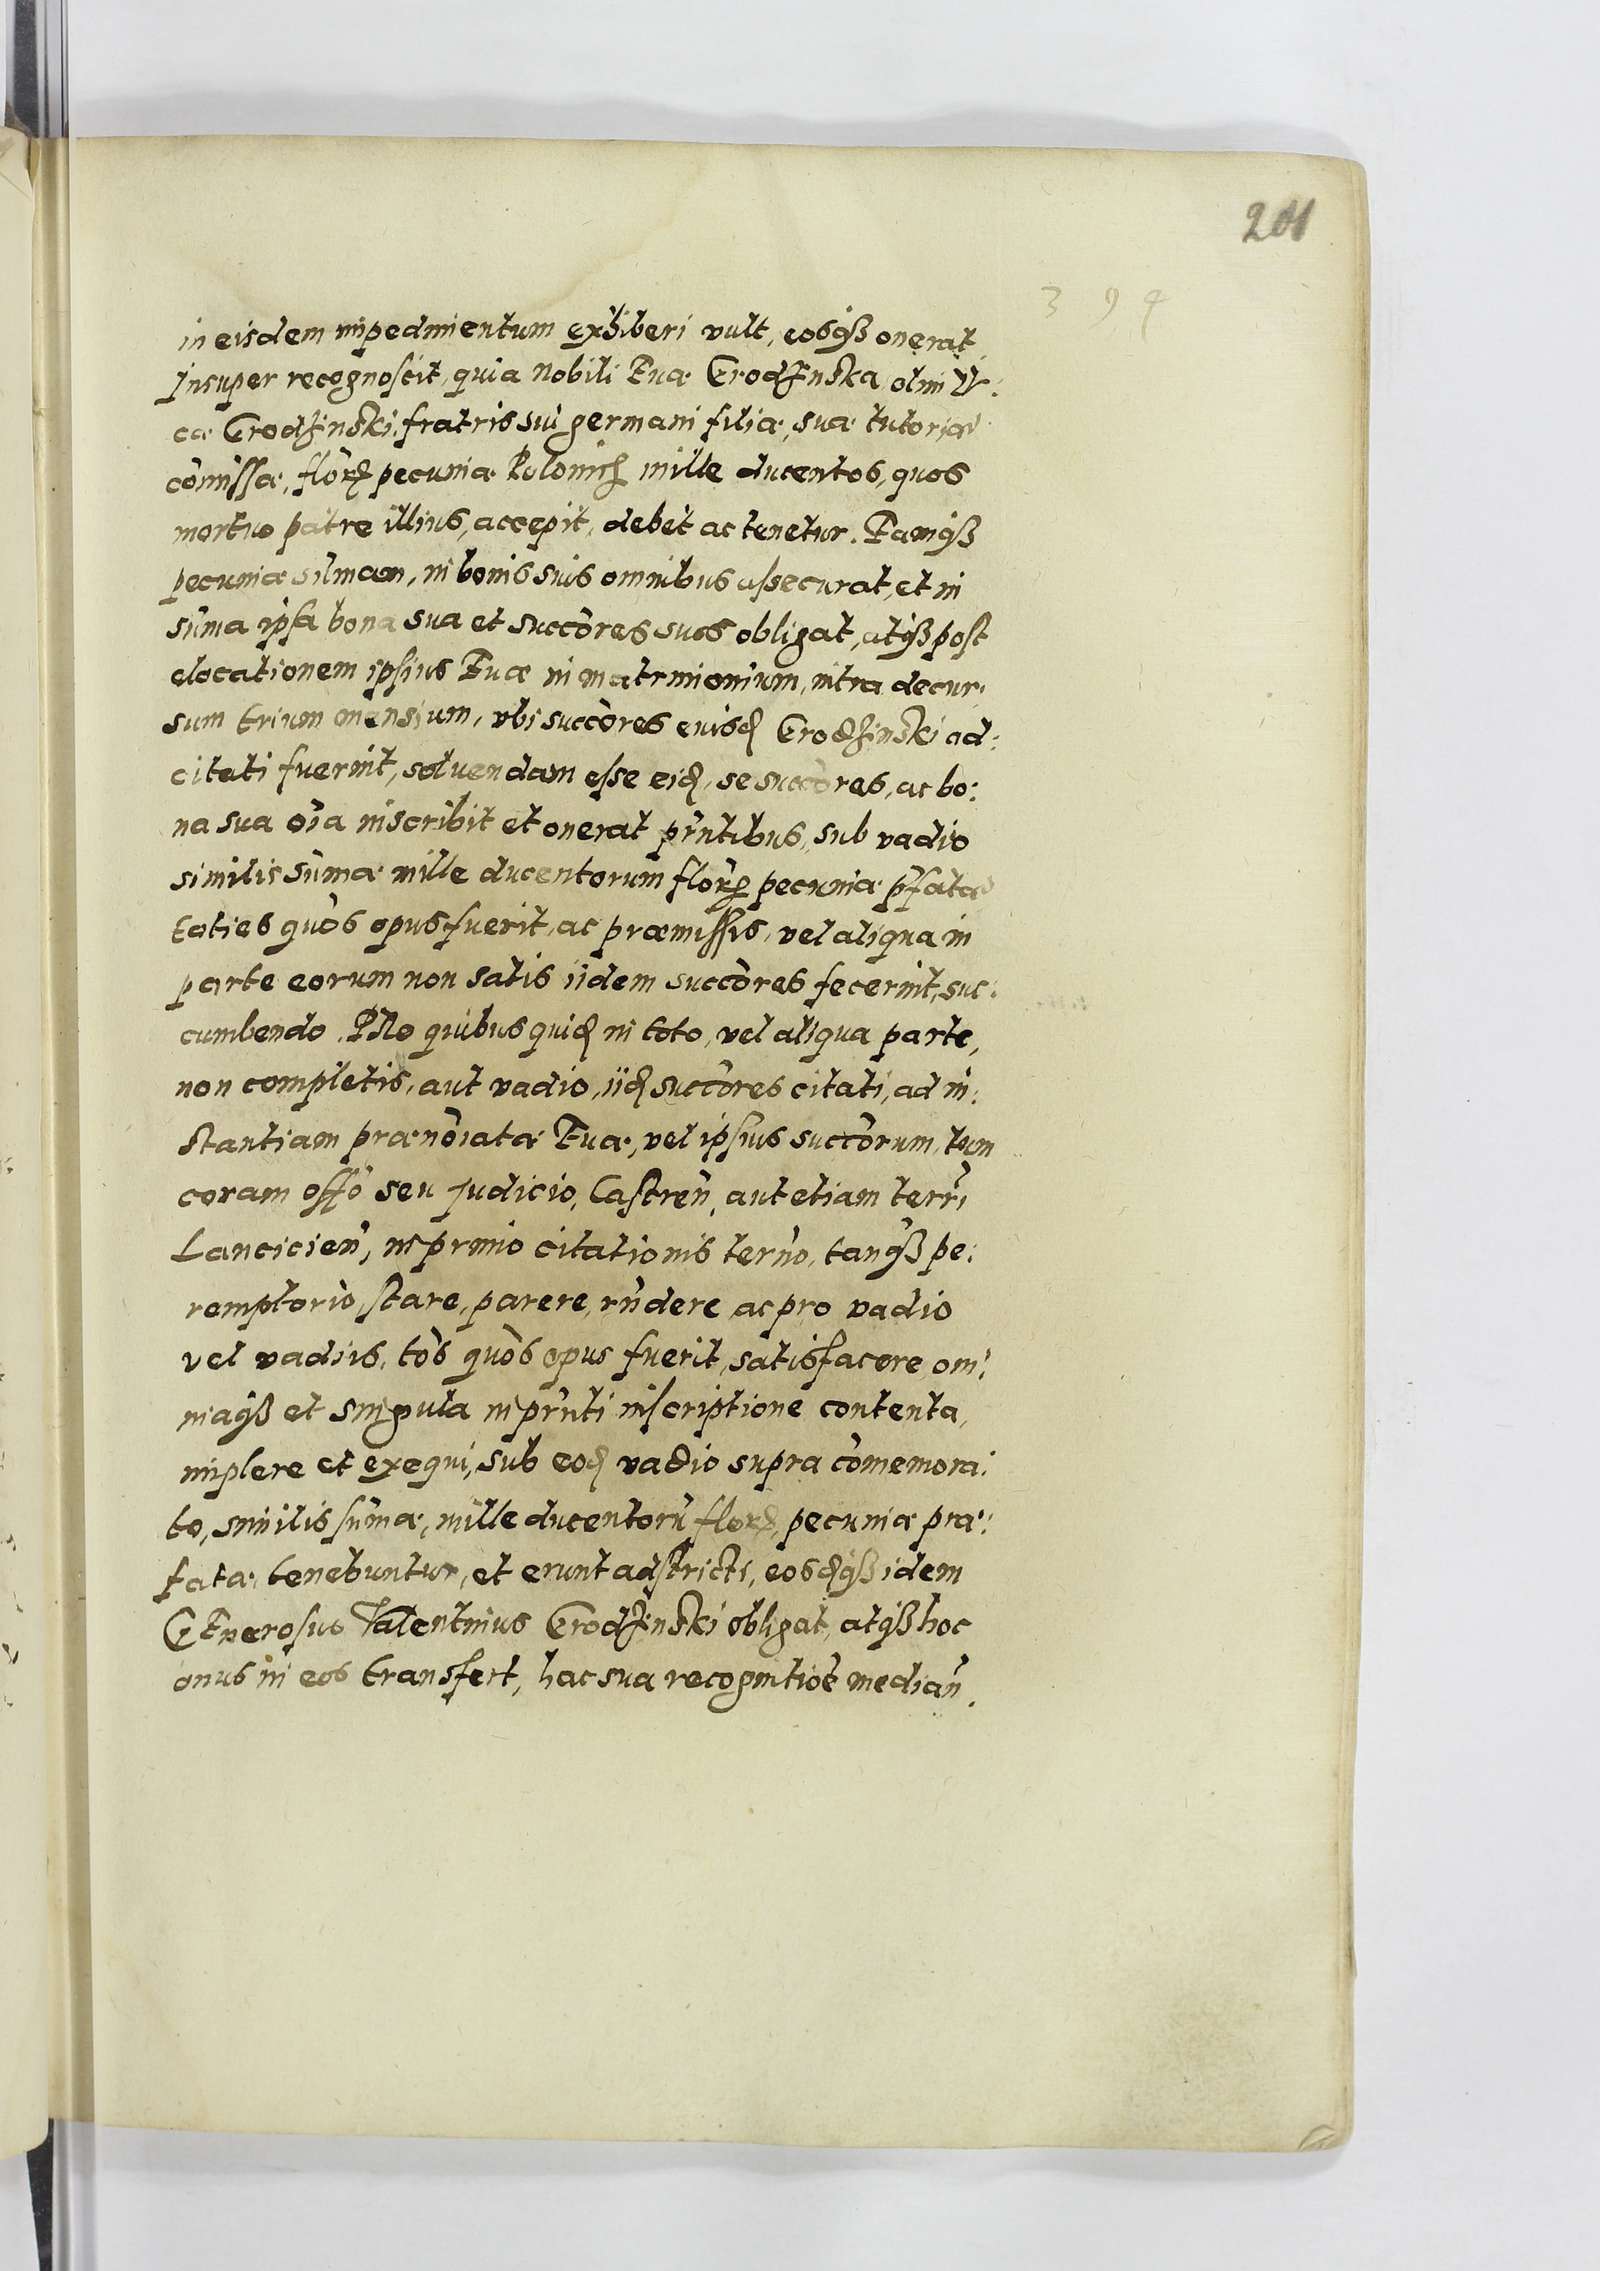 201
394
in eisdem impedimentum exhiberi vult, eosqꝫ onerat
Insuper recognoscit, quia Nobili Euæ Grodzinska olim
cæ Grodzinski, fratris sui germani filiæ, suæ tutoriæ
com̃issæ, florꝫ pecuniæ Polonicꝫ mille ducentos, quos
mortuo patre illius, accepit, debet ac tenetur. Eamqꝫ
pecuniæ sum̃am, in bonis suis omnibus assecurat, et in
sum̃a ipsa bona sua et succores suos obligat, atqꝫ post
elocationem ipsius Euæ in matrimonium, intra decur:
sum trium mensium, vbi succores euisdꝫ Grodzinski ad:
citati fuerint, soluendam esse eidꝫ, se succores, ac bo:
na sua oĩa inscribit et onerat prñtibus, sub vadio
similis sum̃æ mille ducentorum florꝫ pecuniæ p̃fatæ
toties quos opus fuerit, ac præmissis, vel aliqua in
parte eorum non satis iidem succores fecerint, suc:
cumbendo. P̃Ro quibus quidꝫ in toto, vel aliqua parte,
non completis, aut vadio, iidꝫ succores citati, ad in:
stantiam prænoĩatæ Euæ, vel ipsius succorum, tum
coram offo seu Judicio, Castreñ, aut etiam terri
Lancicieñ, in primo citationis terño, tanqꝫ pe:
remptorio, stare, parere, rñdere, ac pro vadio
vel vadiis, tos quos opus fuerit, satisfacere, om:
niaqꝫ et singula in prñti inscriptione contenta,
implere et exequi, sub eodꝫ vadio supra com̃emora:
to, similis sum̃æ, mille ducentorũ florꝫ, pecuniæ præ:
fatæ, tenebuntur, et erunt adstricti, eosdꝫqꝫ idem
GEnerosus Valentinus Grodzinski obligat, atqꝫ hoc
onus in eos transfert, hac sua recognitioẽ mediañ.